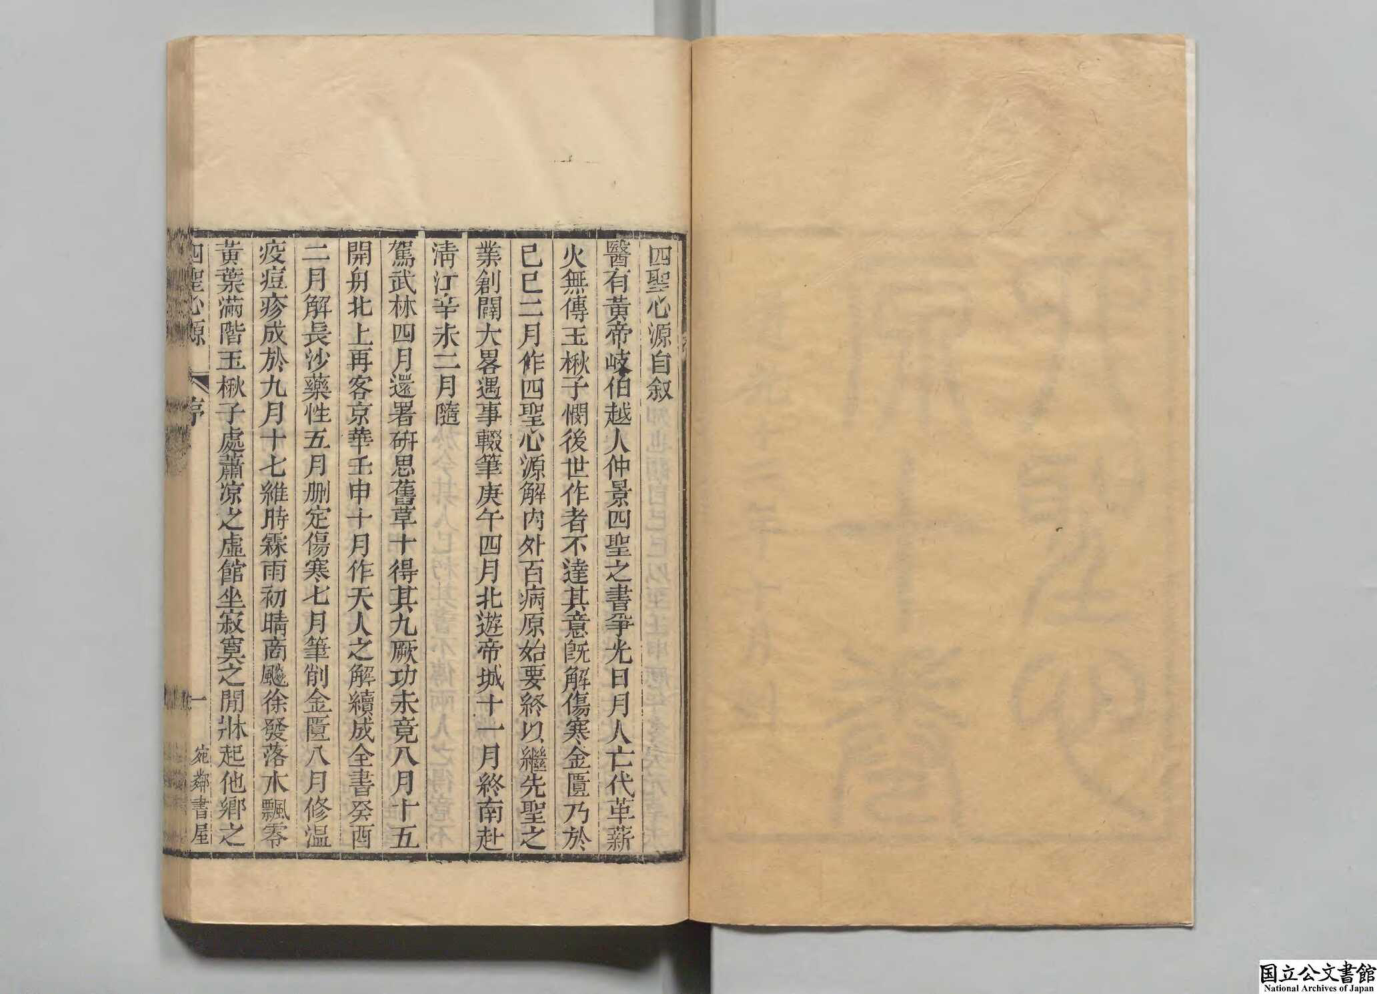 四聖心源自叙
醫有黃帝岐伯越人仲景四聖之書爭光日月人亡代革薪
火無傳玉楸子憫後世作者不達其意旣解傷寒金匱乃於
己巳二月作四聖心源解內外百病原始要終以繼先聖之
業創闢大畧遇事輟筆庚午四月北遊帝城十一月終南赴
淸江辛未二月隨
駕武林四月還署硏思舊草十得其九厥功未竟八月十五
開舟北上再客京華壬申十月作天人之解續成全書癸酉
二月解長沙藥性五月刪定傷寒七月筆削金匱八月修溫
疫痘疹成於九月十七維時霖雨初晴商飈徐發落木飄零
黃葉滿階玉楸子處蕭凉之虛館坐寂寞之閒牀起他鄉之
四聖心源 序 一 宛鄰書屋
国立公文書館
National Archives of Japan